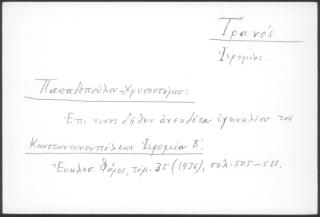 Τρανός
Ἱερεμίας.
Παπαδοπούλου Χρυσοστόμου:
Ἐπί τινος δῆθεν ἀνεκδότου ἐγκωμίου τοῦ
Κωνσταντινουπόλεως Ἱερεμία Β΄.
Ἐκκλησ. Φάρος, τόμ. 35 (1936), σελ. 505-511.